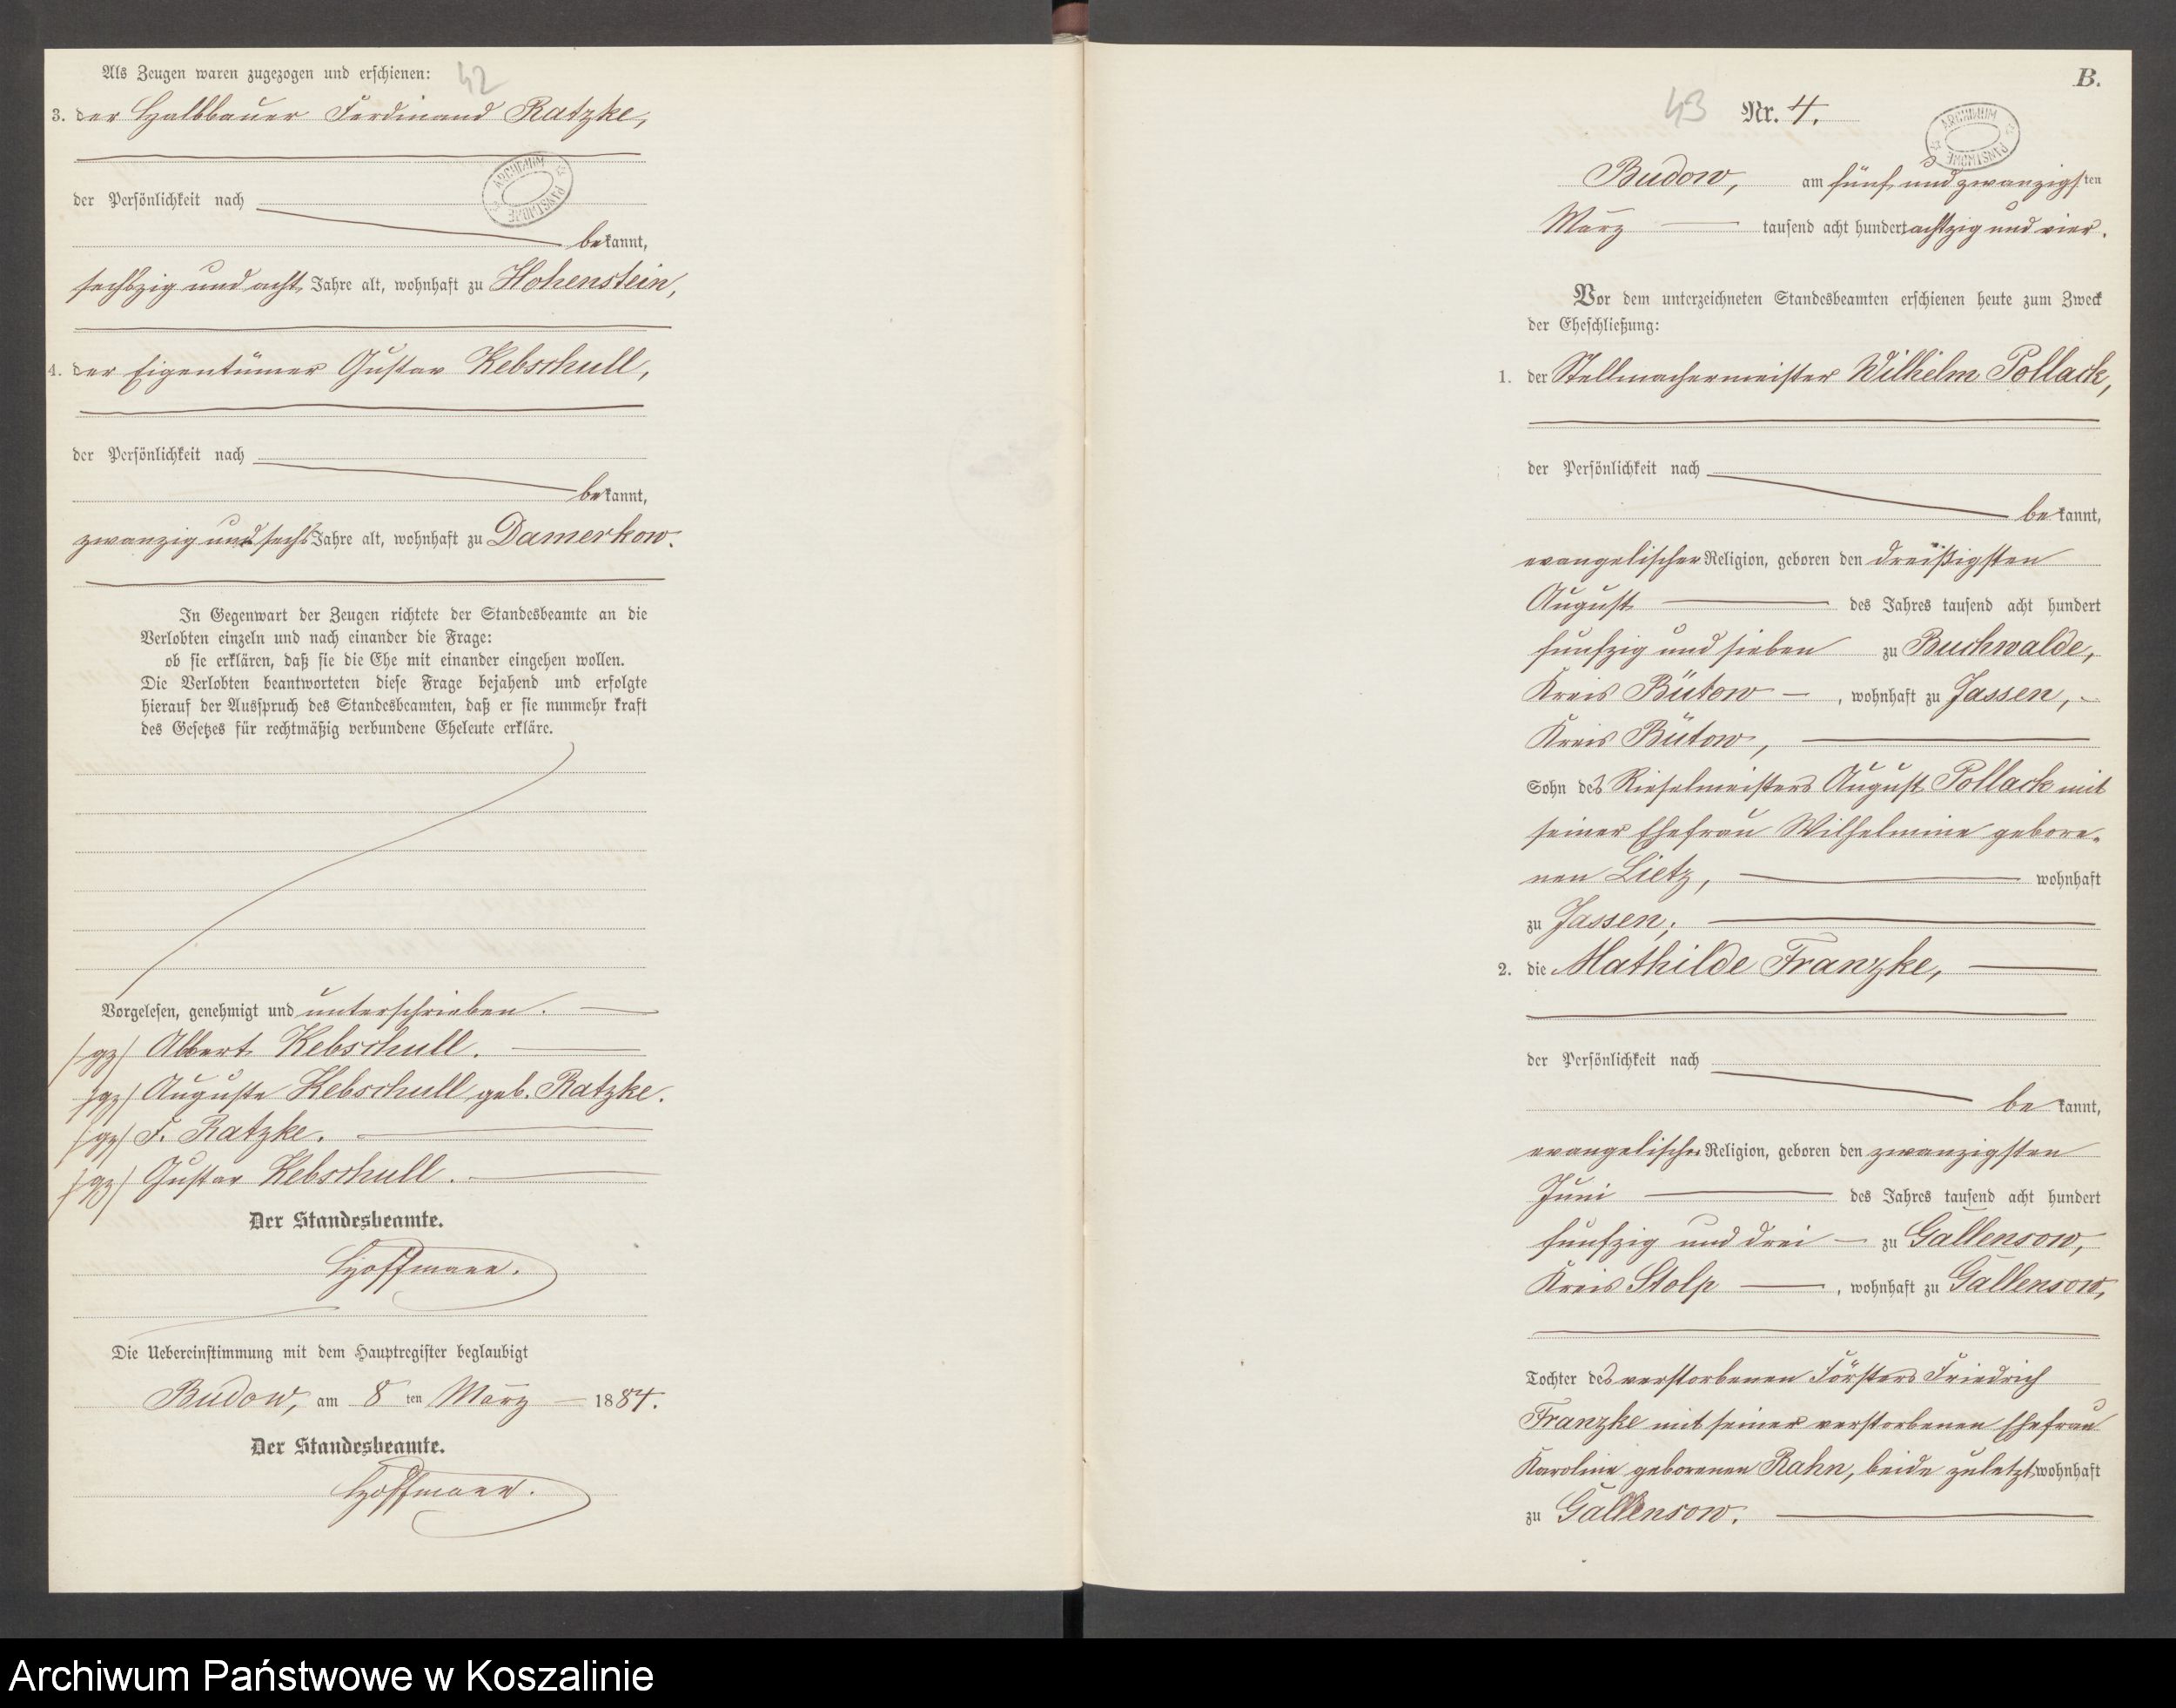 Als Zeugen waren zugezogen und erschienen:
42
3. der Halbbauer Ferdinand Ratzke,
ARCHIWUM PAŃSTWOWE
der Persönlichkeit nach
bekannt,
sechszig und acht Jahre alt, wohnhaft zu Hohenstein,
4. der Eigentümer Gustav Kebschull,
der Persönlichkeit nach
bekannt,
zwanzig und sechs Jahre alt, wohnhaft zu Damerkow.
In Gegenwart der Zeugen richtete der Standesbeamte an die
Verlobten einzeln und nach einander die Frage:
ob sie erklären, daß sie die Ehe mit einander eingehen wollen.
Die Verlobten beantworteten diese Frage bejahend und erfolgte
hierauf der Ausspruch des Standesbeamten, daß er sie nunmehr kraft
des Gesetzes für rechtmäßig verbundene Eheleute erkläre.
Vorgelesen, genehmigt und unterschrieben.
/gz/ Albert Kebschull.
/gz/ Auguste Kebschull geb. Ratzke.
/gz/ F. Ratzke.
/gz/ Gustav Kebschull.
Der Standesbeamte.
Hoffmann.
Die Uebereinstimmung mit dem Hauptregister beglaubigt
Budow, am 8 ten März 1884.
Der Standesbeamte.
Hoffmann.
B.
43
Nr. 4.
ARCHIWUM PAŃSTWOWE
Budow, am fünf und zwanzigsten
März tausend acht hundert achtzig und vier.
Vor dem unterzeichneten Standesbeamten erschienen heute zum Zweck
der Eheschließung:
1. der Stellmachermeister Wilhelm Pollack,
der Persönlichkeit nach
bekannt,
evangelischer Religion, geboren den dreißigsten
August des Jahres tausend acht hundert
funfzig und sieben zu Buchwalde,
Kreis Bütow, wohnhaft zu Jassen,
Kreis Bütow,
Sohn des Rieselmeisters August Pollack mit
seiner Ehefrau Wilhelmine gebore-
nen Lietz, wohnhaft
zu Jassen;
2. die Mathilde Franzke,
der Persönlichkeit nach
bekannt,
evangelischer Religion, geboren den zwanzigsten
Juni des Jahres tausend acht hundert
funfzig und drei zu Gallensow,
Kreis Stolp, wohnhaft zu Gallensow,
Tochter des verstorbenen Försters Friedrich
Franzke mit seiner verstorbenen Ehefrau
Karoline geborenen Rahn, beide zuletzt wohnhaft
zu Gallensow.
Archiwum Państwowe w Koszalinie